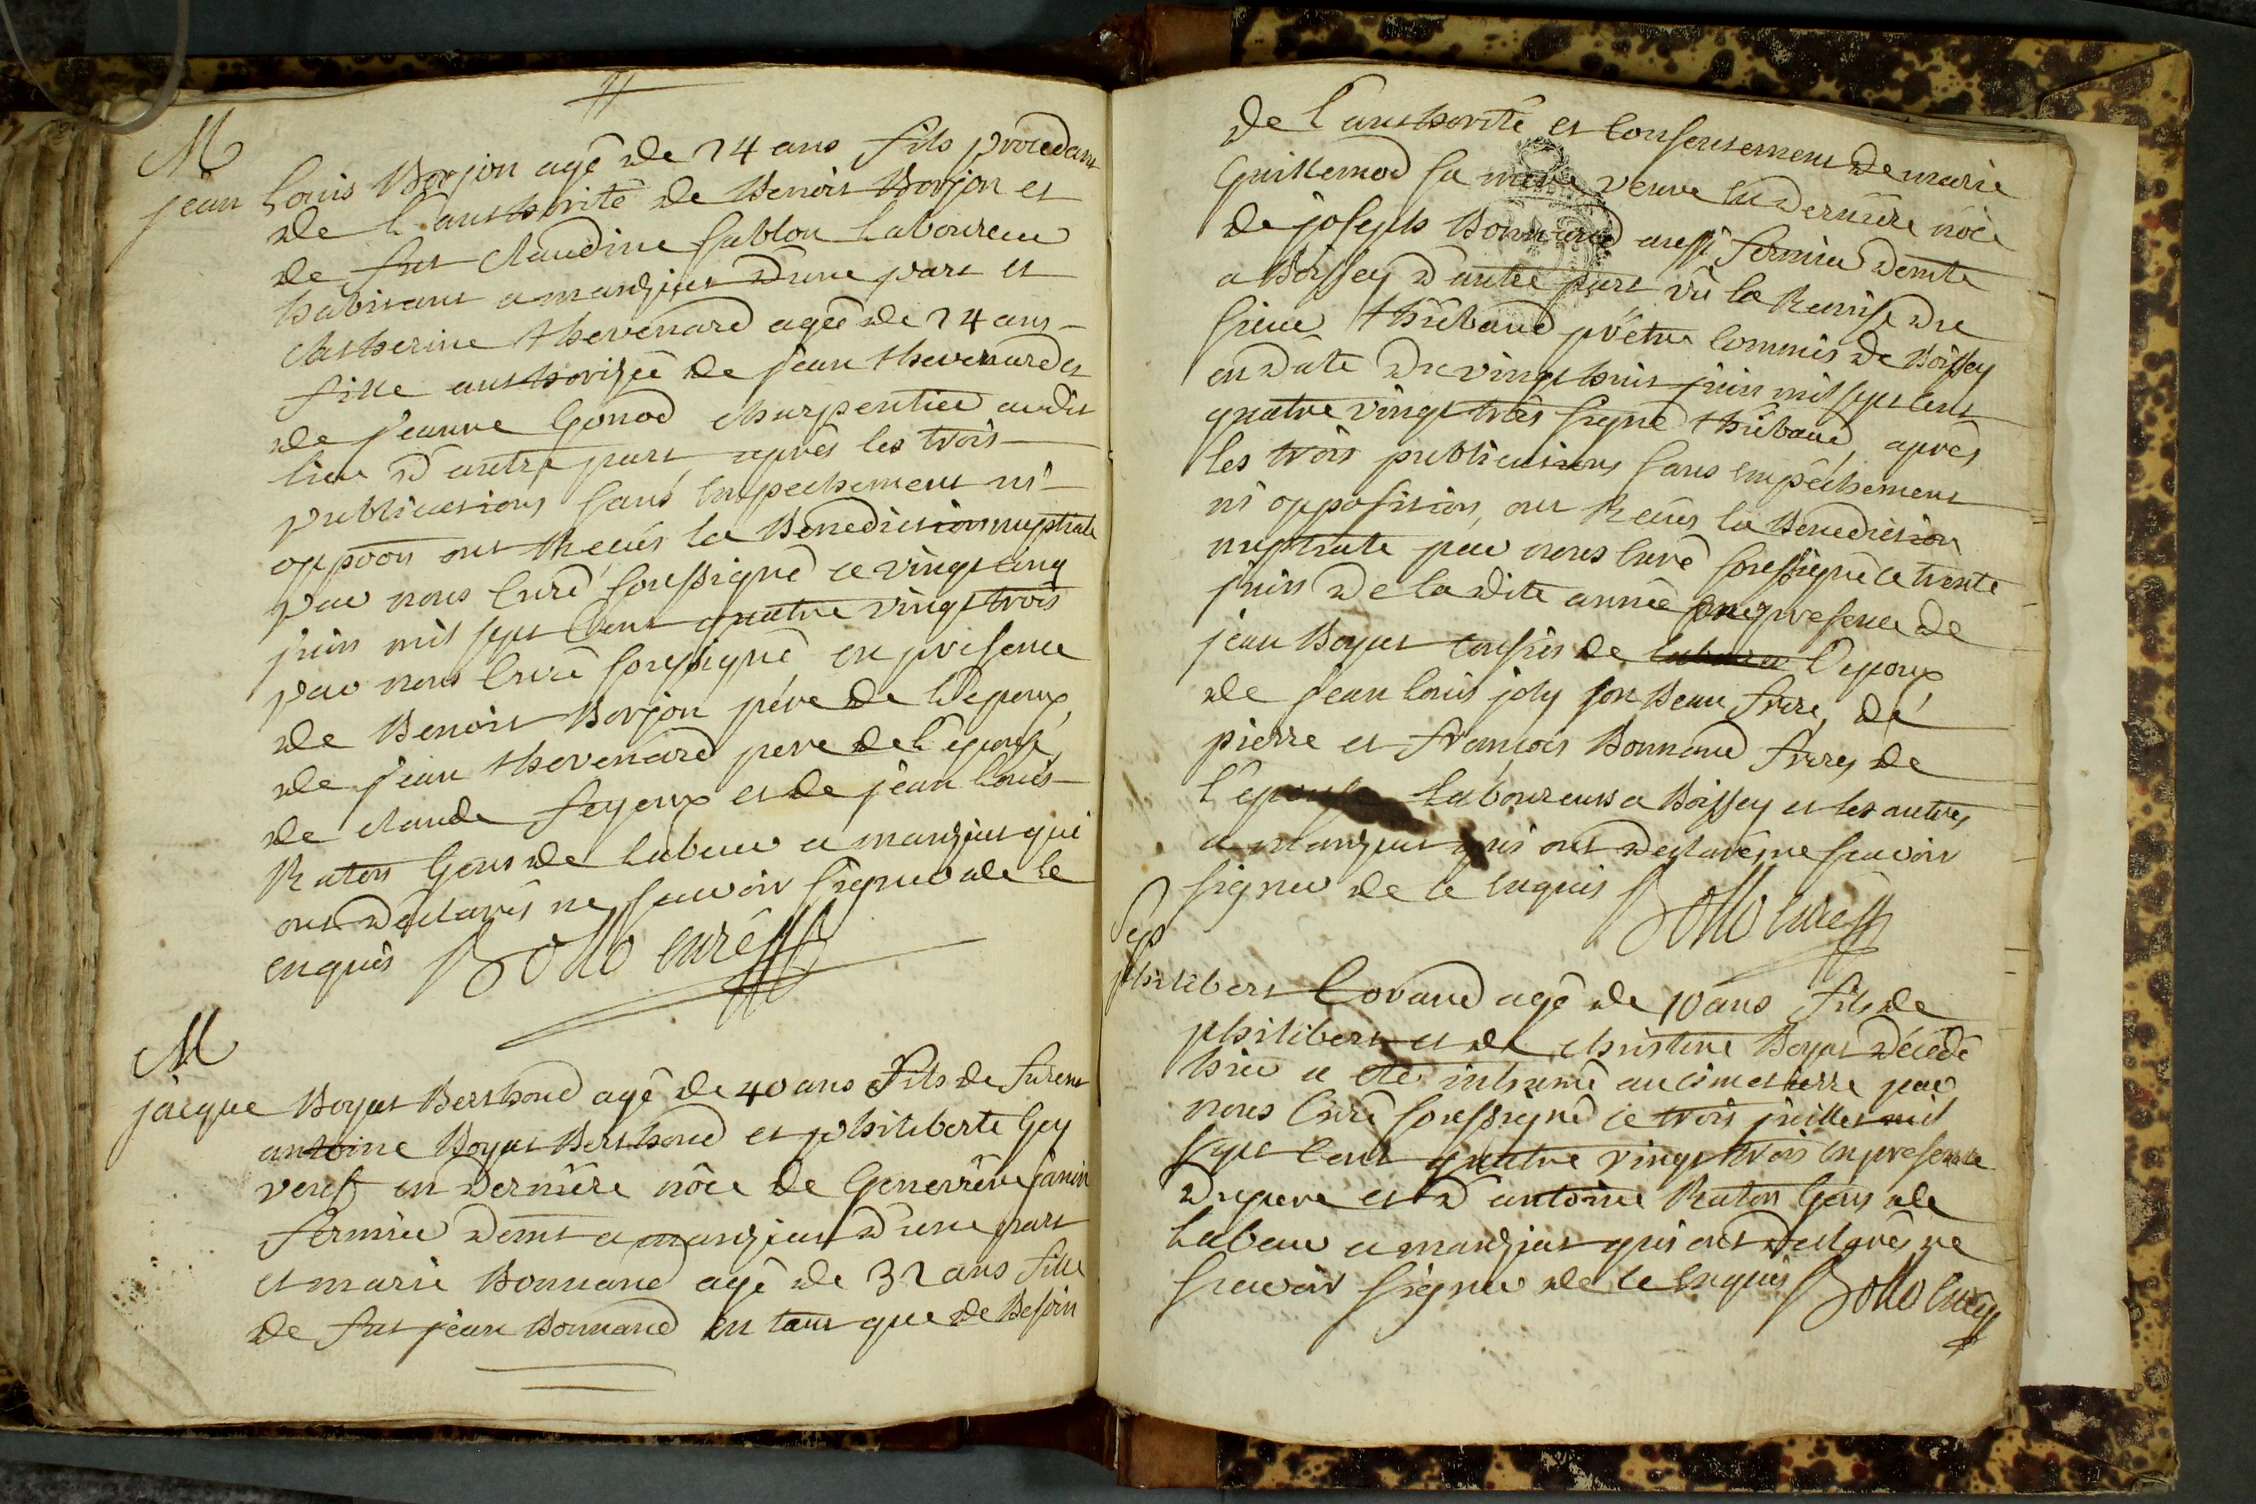 M
jean Louis Borjon agé de 24 ans fils procedant
de l'authorité de Benoit Borjon et
de fut Claudine Sablon Laboureur
habitant a manziat d'une part et
Catherine thevenard agée de 24 ans
fille authorizée de jean thevenard et
de jeanne Gonod charpentier audit
lieu d'autre part après les trois
publications sans empechement ni
oppoon ont Reçus la Benediction nuptiale
par nous Curé soussigné ce vingt cinq
juin mil sept Cent quatre vingt trois
par nous Curé soussigné en presence
de Benoit Borjon père de L'epoux,
de jean thevenard pere de l'épouse,
de claude feyeux et de jean Louis
Raton Gens de Labeur a manziat qui
ont déclarés ne scavoir signer de ce
enquis Bollo curé
M
jacque Boyat Berthoud agé de 40 ans fils de furent
antoine Boyat Berthoud et philiberte Gey
veuf en derniére nôce de Genevieve janin
fermier demt a manziat d'une part
et marie Bonnand agé de 32 ans fille
de fut jean Bonnand en tant que de Besoin
de l'authorité et Consentement de marie
Guillemod sa mère veuve en derniére nôce
de joseph Bonnand aussi fermier demte
a Boissey d'autre part vû la Remise du
sieur thiébaud prêtre Commis de Boissey
en date du vingt huit juin mil sept Cent
quatre vingt trois signé thiébaud, après
les trois publications sans empéchement
ni opposition, ont Reçus la Benediction
nuptiale par nous Curé soussigné ce trente
juin de la dite année en presence de
jean Boyat Cousin de L'epoux
de jean Louis joly son Beau frere, de
pierre et françois Bonnand freres de
l'épouse Laboureurs a Boissey et les autres
a manziat qui ont déclarés ne scavoir
signer de ce enquis Bollo Curé
Sep
philibert Lovand agé de 10 ans fils de
philibert et de christine Boyat décédé
hier a eté inhumé au cimetierre par
nous Curé soussigné ce trois juillet mil
sept Cent quatre vingt trois en presence
du pere et d'antoine Raton Gens de
Labeur a manziat qui ont déclarés ne
scavoir signer de ce enquis Bollo Curé